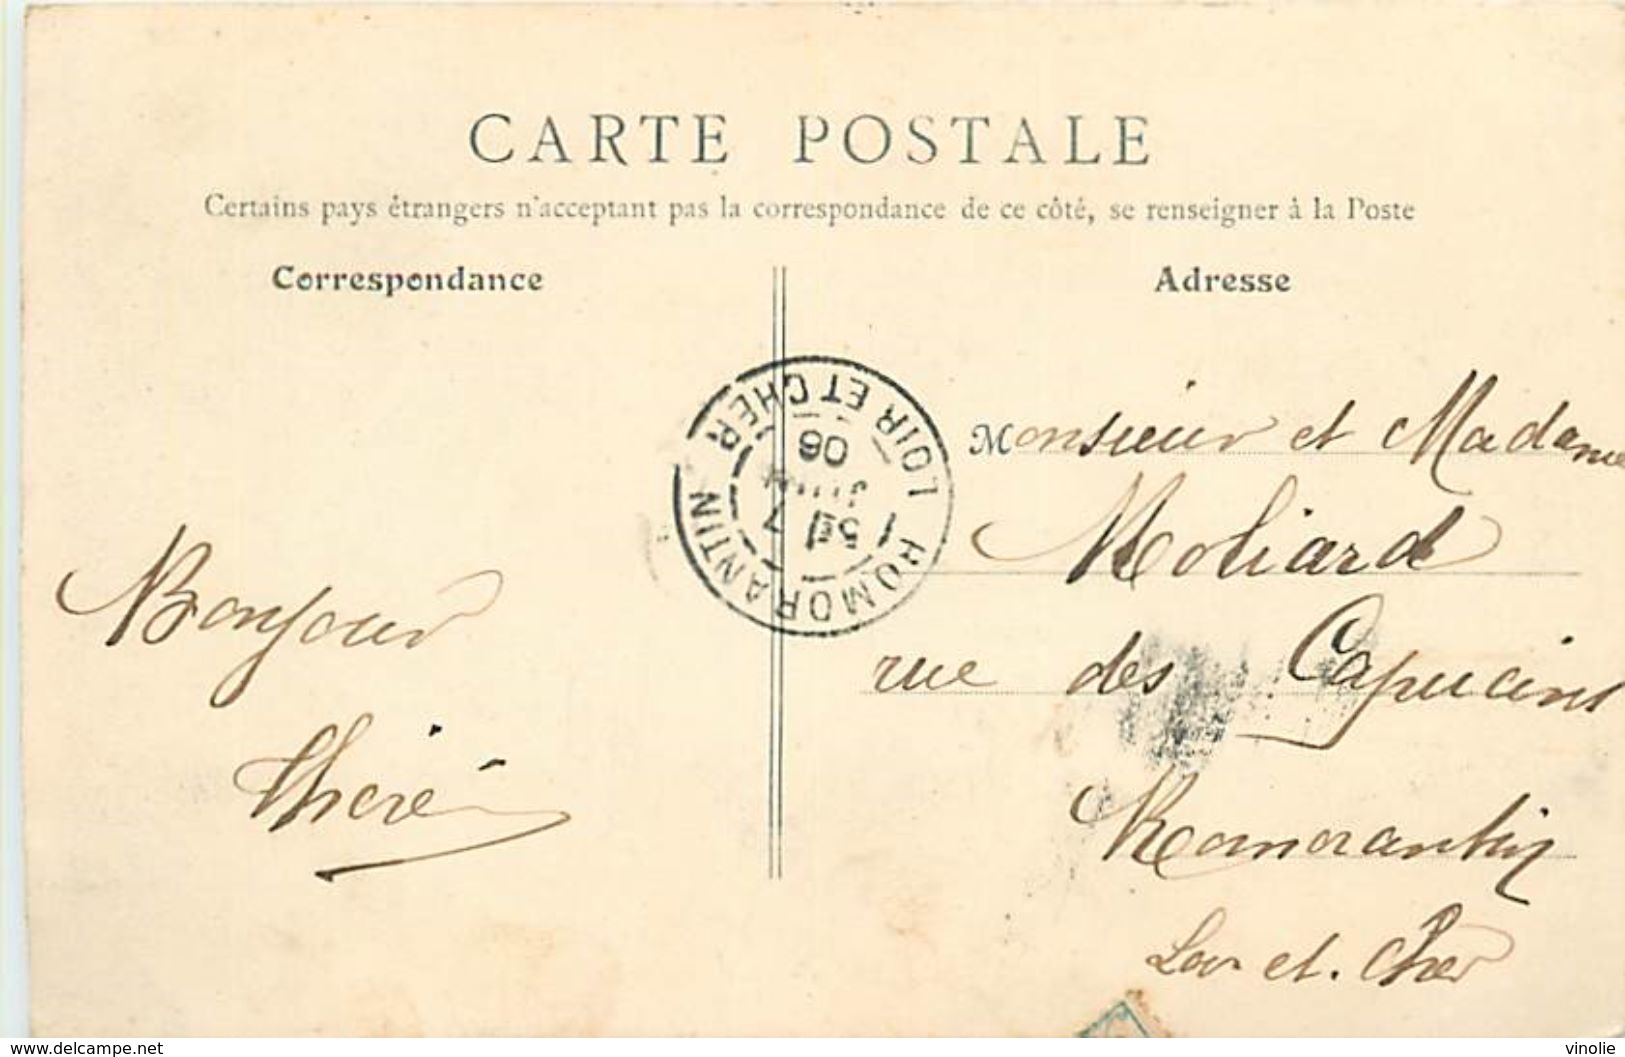 CARTE POSTALE
Certains pays étrangers n'acceptant pas la correspondance de ce côté, se renseigner à la Poste
Correspondance
Adresse
ROMORANTIN
LOIR ET CHER
5E 7
06
Monsieur et Madame
Moliard
rue des Capucins
Romorantin
Loir et. Cher
Bonjour
www.delcampe.net
vinolie